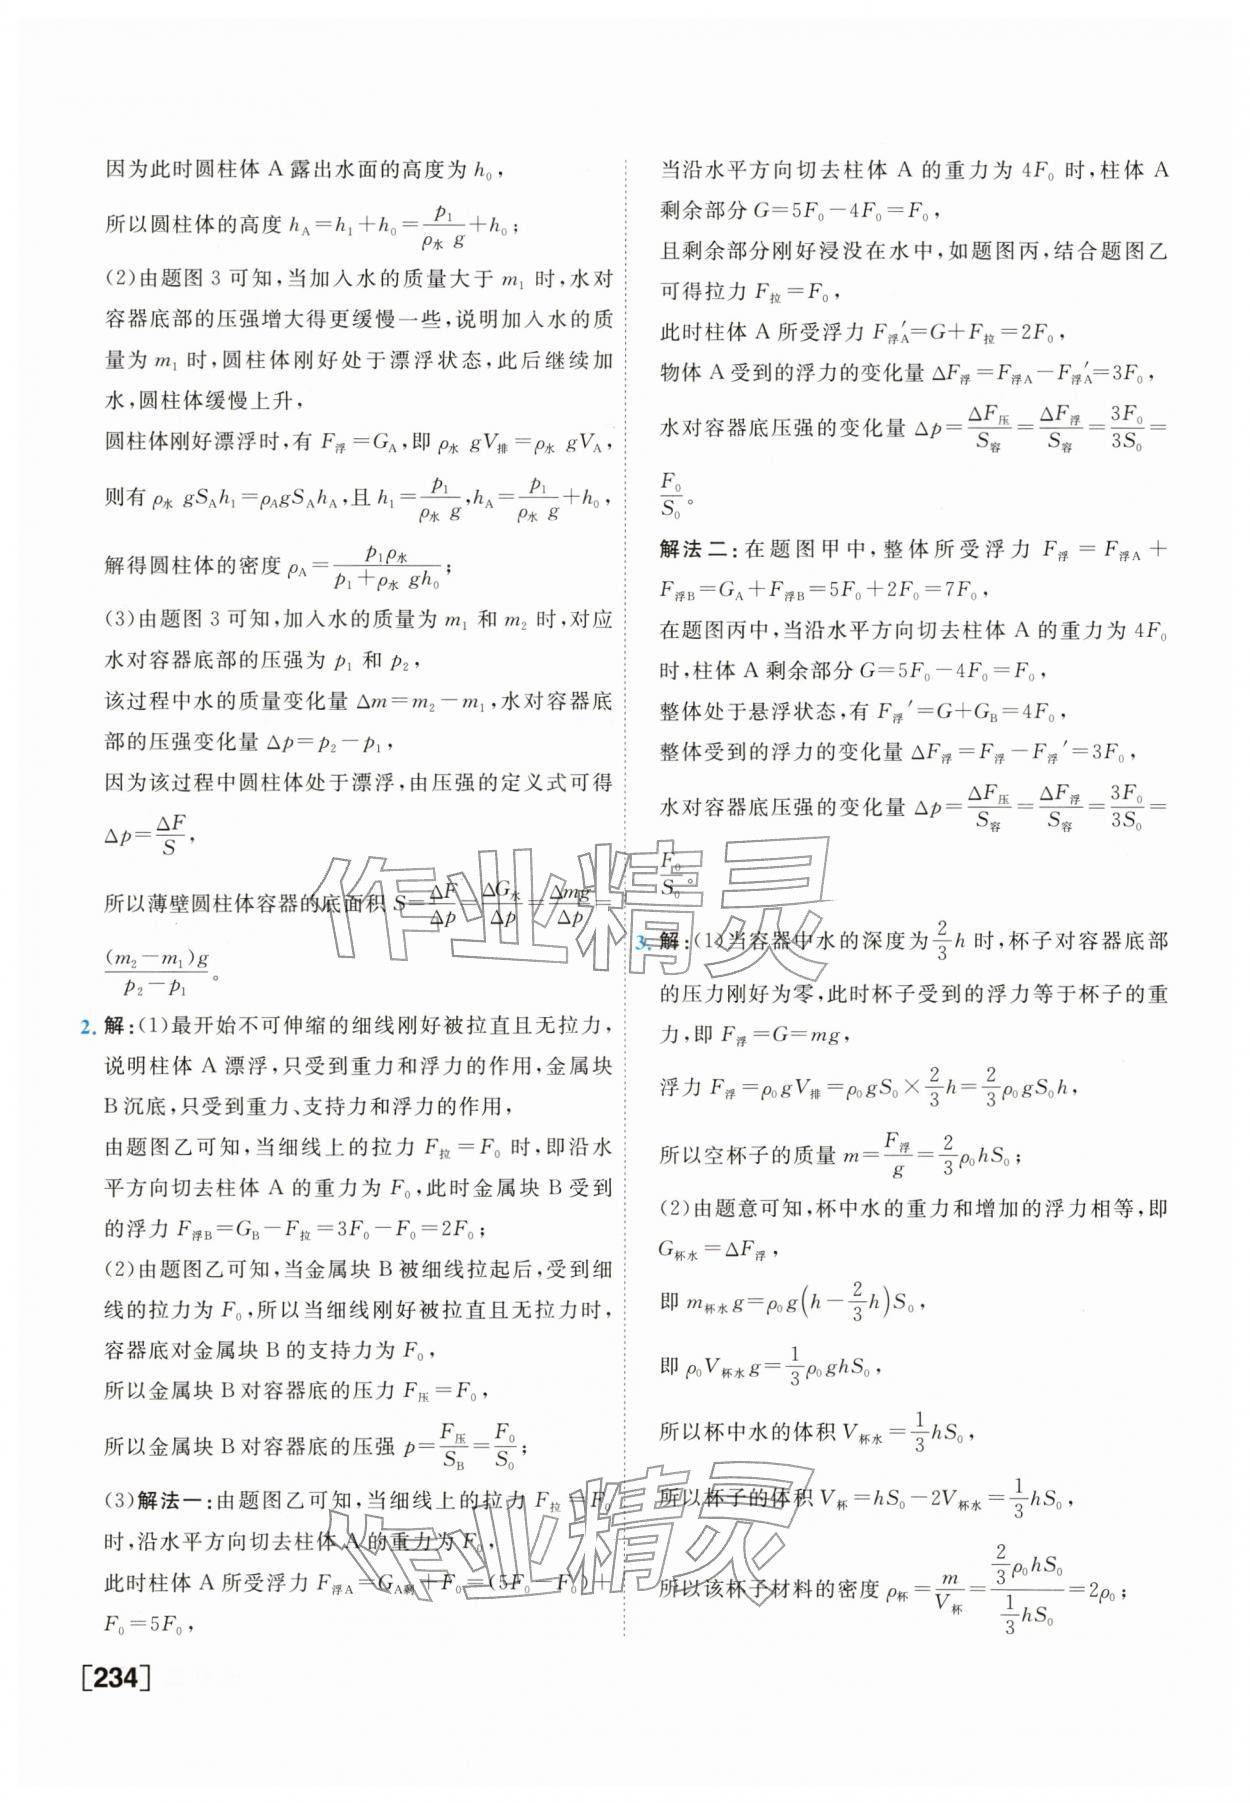 因为此时圆柱体 A 露出水面的高度为 h₀，
所以圆柱体的高度 h_A=h₁+h₀=p₁/(ρ水 g)+h₀；
(2)由题图 3 可知，当加入水的质量大于 m₁ 时，水对
容器底部的压强增大得更缓慢一些，说明加入水的质
量为 m₁ 时，圆柱体刚好处于漂浮状态，此后继续加
水，圆柱体缓慢上升，
圆柱体刚好漂浮时，有 F浮=G_A，即 ρ水 gV排=ρ水 gV_A，
则有 ρ水 gS_Ah₁=ρ_AgS_Ah_A，且 h₁=p₁/(ρ水 g)，h_A=p₁/(ρ水 g)+h₀，
解得圆柱体的密度 ρ_A=p₁ρ水/(p₁+ρ水 gh₀)；
(3)由题图 3 可知，加入水的质量为 m₁ 和 m₂ 时，对应
水对容器底部的压强为 p₁ 和 p₂，
该过程中水的质量变化量 Δm=m₂-m₁，水对容器底
部的压强变化量 Δp=p₂-p₁，
因为该过程中圆柱体处于漂浮，由压强的定义式可得
Δp=ΔF/S，
所以薄壁圆柱体容器的底面积 S=ΔF/Δp=ΔG水/Δp=Δmg/Δp=
(m₂-m₁)g/(p₂-p₁)。
2. 解：(1)最开始不可伸缩的细线刚好被拉直且无拉力，
说明柱体 A 漂浮，只受到重力和浮力的作用，金属块
B 沉底，只受到重力、支持力和浮力的作用，
由题图乙可知，当细线上的拉力 F拉=F₀ 时，即沿水
平方向切去柱体 A 的重力为 F₀，此时金属块 B 受到
的浮力 F浮B=G_B-F拉=3F₀-F₀=2F₀；
(2)由题图乙可知，当金属块 B 被细线拉起后，受到细
线的拉力为 F₀，所以当细线刚好被拉直且无拉力时，
容器底对金属块 B 的支持力为 F₀，
所以金属块 B 对容器底的压力 F压=F₀，
所以金属块 B 对容器底的压强 p=F压/S_B=F₀/S₀；
(3)解法一：由题图乙可知，当细线上的拉力 F拉=F₀
时，沿水平方向切去柱体 A 的重力为 F₀，
此时柱体 A 所受浮力 F浮A=G_A剩+F₀=(5F₀-F₀)+
F₀=5F₀，
[234]
当沿水平方向切去柱体 A 的重力为 4F₀ 时，柱体 A
剩余部分 G=5F₀-4F₀=F₀，
且剩余部分刚好浸没在水中，如题图丙，结合题图乙
可得拉力 F拉=F₀，
此时柱体 A 所受浮力 F浮A′=G+F拉=2F₀，
物体 A 受到的浮力的变化量 ΔF浮=F浮A-F浮A′=3F₀，
水对容器底压强的变化量 Δp=ΔF压/S容=ΔF浮/S容=3F₀/3S₀=
F₀/S₀。
解法二：在题图甲中，整体所受浮力 F浮=F浮A+
F浮B=G_A+F浮B=5F₀+2F₀=7F₀，
在题图丙中，当沿水平方向切去柱体 A 的重力为 4F₀
时，柱体 A 剩余部分 G=5F₀-4F₀=F₀，
整体处于悬浮状态，有 F浮′=G+G_B=4F₀，
整体受到的浮力的变化量 ΔF浮=F浮-F浮′=3F₀，
水对容器底压强的变化量 Δp=ΔF压/S容=ΔF浮/S容=3F₀/3S₀=
F₀/S₀。
3. 解：(1)当容器中水的深度为 2/3 h 时，杯子对容器底部
的压力刚好为零，此时杯子受到的浮力等于杯子的重
力，即 F浮=G=mg，
浮力 F浮=ρ₀gV排=ρ₀gS₀×2/3 h=2/3 ρ₀gS₀h，
所以空杯子的质量 m=F浮/g=2/3 ρ₀hS₀；
(2)由题意可知，杯中水的重力和增加的浮力相等，即
G杯水=ΔF浮，
即 m杯水g=ρ₀g(h-2/3 h)S₀，
即 ρ₀V杯水g=1/3 ρ₀ghS₀，
所以杯中水的体积 V杯水=1/3 hS₀，
所以杯子的体积 V杯=hS₀-2V杯水=1/3 hS₀，
所以该杯子材料的密度 ρ杯=m/V杯=(2/3 ρ₀hS₀)/(1/3 hS₀)=2ρ₀；
作业精灵
作业精灵